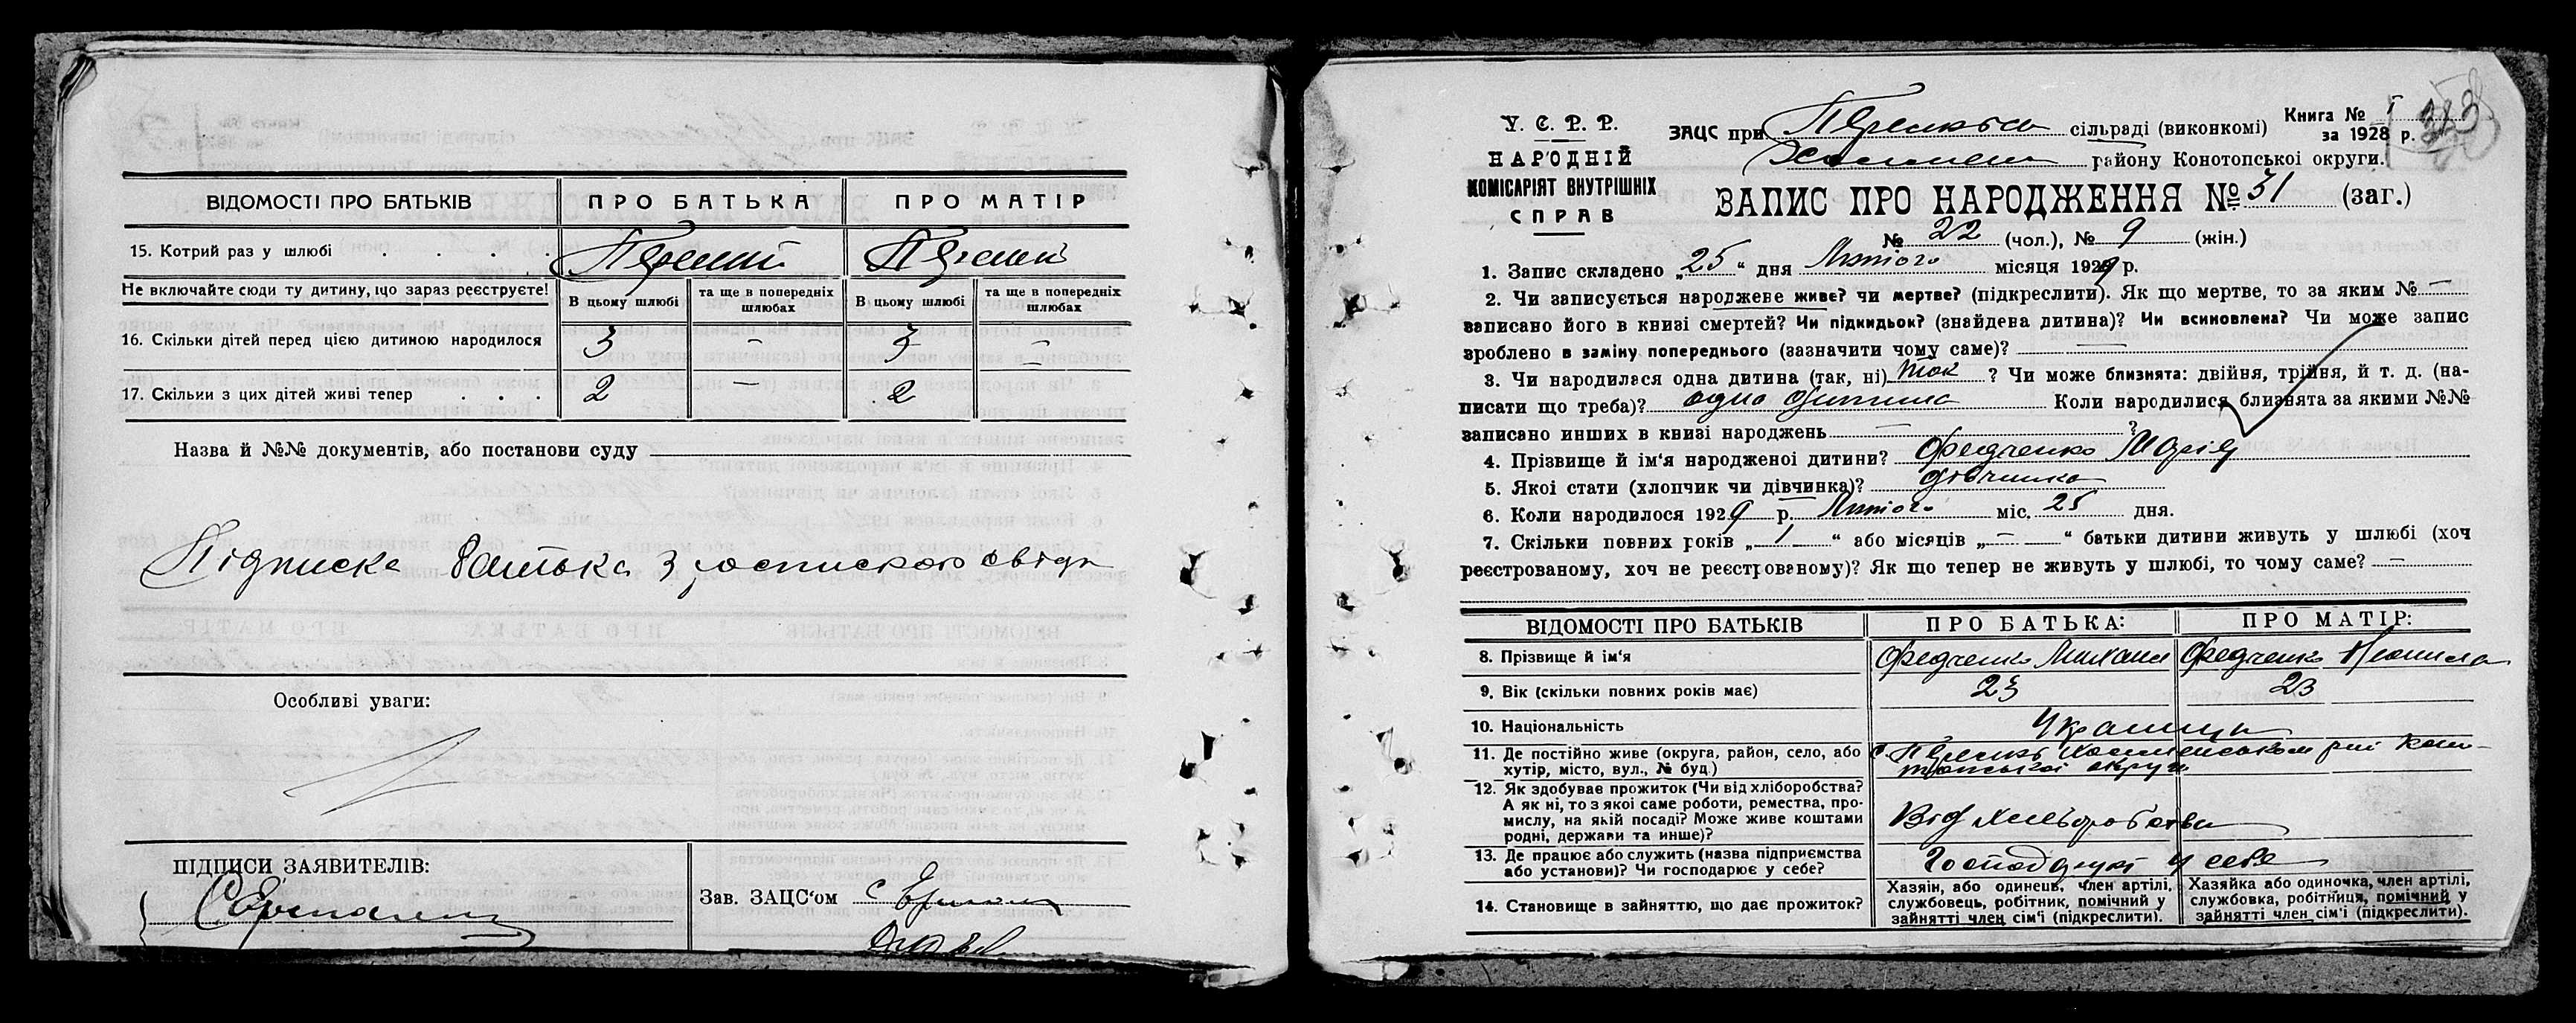 ВІДОМОСТІ ПРО БАТЬКІВ ПРО БАТЬКА ПРО МАТІР
15. Котрий раз у шлюбі . . . . Перший Перший
Не включайте сюди ту дитину, що зараз реєструєте! В цьому шлюбі та ще в попередніх шлюбах В цьому шлюбі та ще в попередніх шлюбах
16. Скільки дітей перед цією дитиною народилося 3 — 3 —
17. Скільки з цих дітей живі тепер . . . 2 — 2
Назва й №№ документів, або постанови суду
Підписка батька з
Особливі уваги:
ПІДПИСИ ЗАЯВИТЕЛІВ:
Зав. ЗАЦС‘ом
У. С. Р. Р.
НАРОДНІЙ
КОМІСАРІЯТ ВНУТРІШНІХ
СПРАВ
Книга № I
за 1928 р.
ЗАЦС при сільраді (виконкомі)
району Конотопської округи.
ЗАПИС ПРО НАРОДЖЕННЯ № 31 (заг.)
№ 22 (чол.), № 9 (жін.)
1. Запис складено „25“ дня Лютого місяця 1929 р.
2. Чи записується народжене живе? чи мертве? (підкреслити). Як що мертве, то за яким № —
записано його в книзі смертей? Чи підкидьок? (знайдена дитина)? Чи всиновлена? Чи може запис
зроблено в заміну попереднього (зазначити чому саме)? —
3. Чи народилася одна дитина (так, ні) так ? Чи може близнята: двійня, трійня, й т. д. (на-
писати що треба)? одна дитина Коли народилися близнята за якими №№
записано инших в книзі народжень — ?
4. Прізвище й ім‘я народженої дитини? Федченко Марія
5. Якої стати (хлопчик чи дівчинка)? дівчинка
6. Коли народилося 1929 р. Лютого міс. 25 дня.
7. Скільки повних років „ 1 “ або місяців „ — “ батьки дитини живуть у шлюбі (хоч
реєстрованому, хоч не реєстрованому)? Як що тепер не живуть у шлюбі, то чому саме? —
ВІДОМОСТІ ПРО БАТЬКІВ ПРО БАТЬКА: ПРО МАТІР:
8. Прізвище й ім‘я Федченко Михаил Федченко
9. Вік (скільки повних років має) 23 23
10. Національність Українці
11. Де постійно живе (округа, район, село, або
хутір, місто, вул., № буд.)
12. Як здобуває прожиток (Чи від хліборобства?
А як ні, то з якої саме роботи, ремества, про-
мислу, на якій посаді? Може живе коштами
родні, держави та инше)? Від хліборобства
13. Де працює або служить (назва підприємства
або установи)? Чи господарює у себе? Господарюют у себе
14. Становище в зайняттю, що дає прожиток?
Хазяін, або одинець, член артілі,
службовець, робітник, помічний у
зайнятті член сім‘ї (підкреслити).
Хазяйка або одиночка, член артілі,
службовка, робітниця, помічний у
зайнятті член сім‘ї (підкреслити).